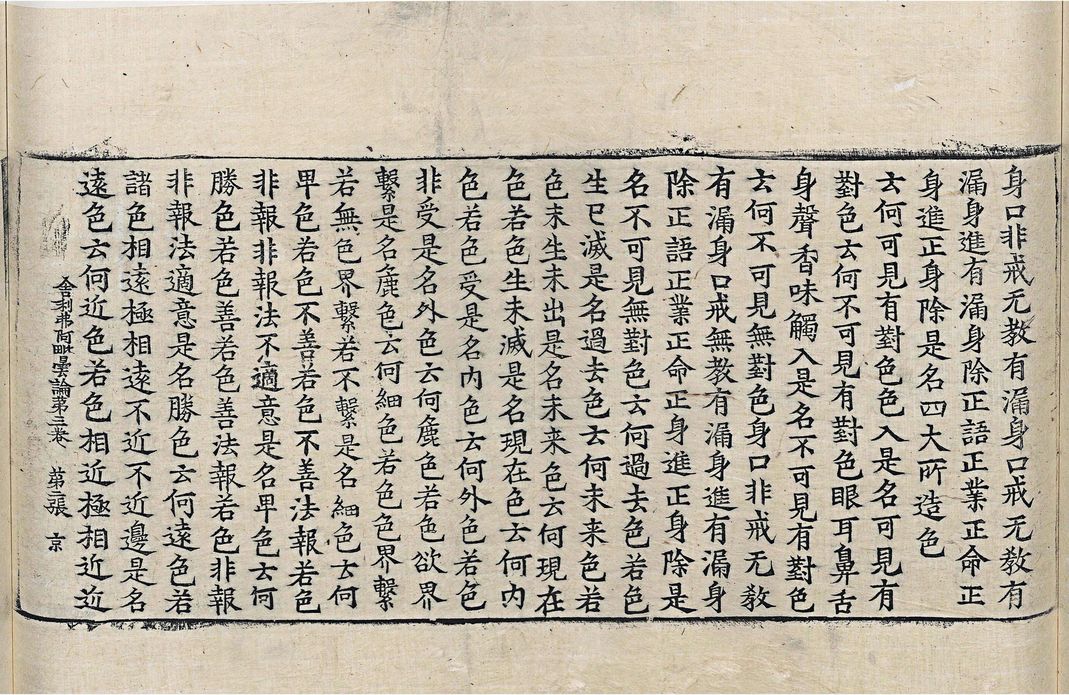 身口非戒无教有漏身口戒无教有
漏身進有漏身除正語正業正命正
身進正身除是名四大所造色
云何可見有對色色入是名可見有
對色云何不可見有對色眼耳鼻舌
身聲香味觸入是名不可見有對色
云何不可見無對色身口非戒无教
有漏身口戒無教有漏身進有漏身
除正語正業正命正身進正身除是
名不可見無對色云何過去色若色
生已滅是名過去色云何未来色若
色未生未出是名未来色云何現在
色若色生未滅是名現在色云何内
色若色受是名内色云何外色若色
非受是名外色云何麁色若色欲界
繫是名麁色云何細色若色色界繫
若無色界繫若不繫是名細色云何
卑色若色不善若色不善法報若色
非報非報法不適意是名卑色云何
勝色若色善若色善法報若色非報
非報法適意是名勝色云何遠色若
諸色相遠極相遠不近不近邊是名
舍利弗阿毗曇論第三卷 第二張 京
遠色云何近色若色相近極相近近